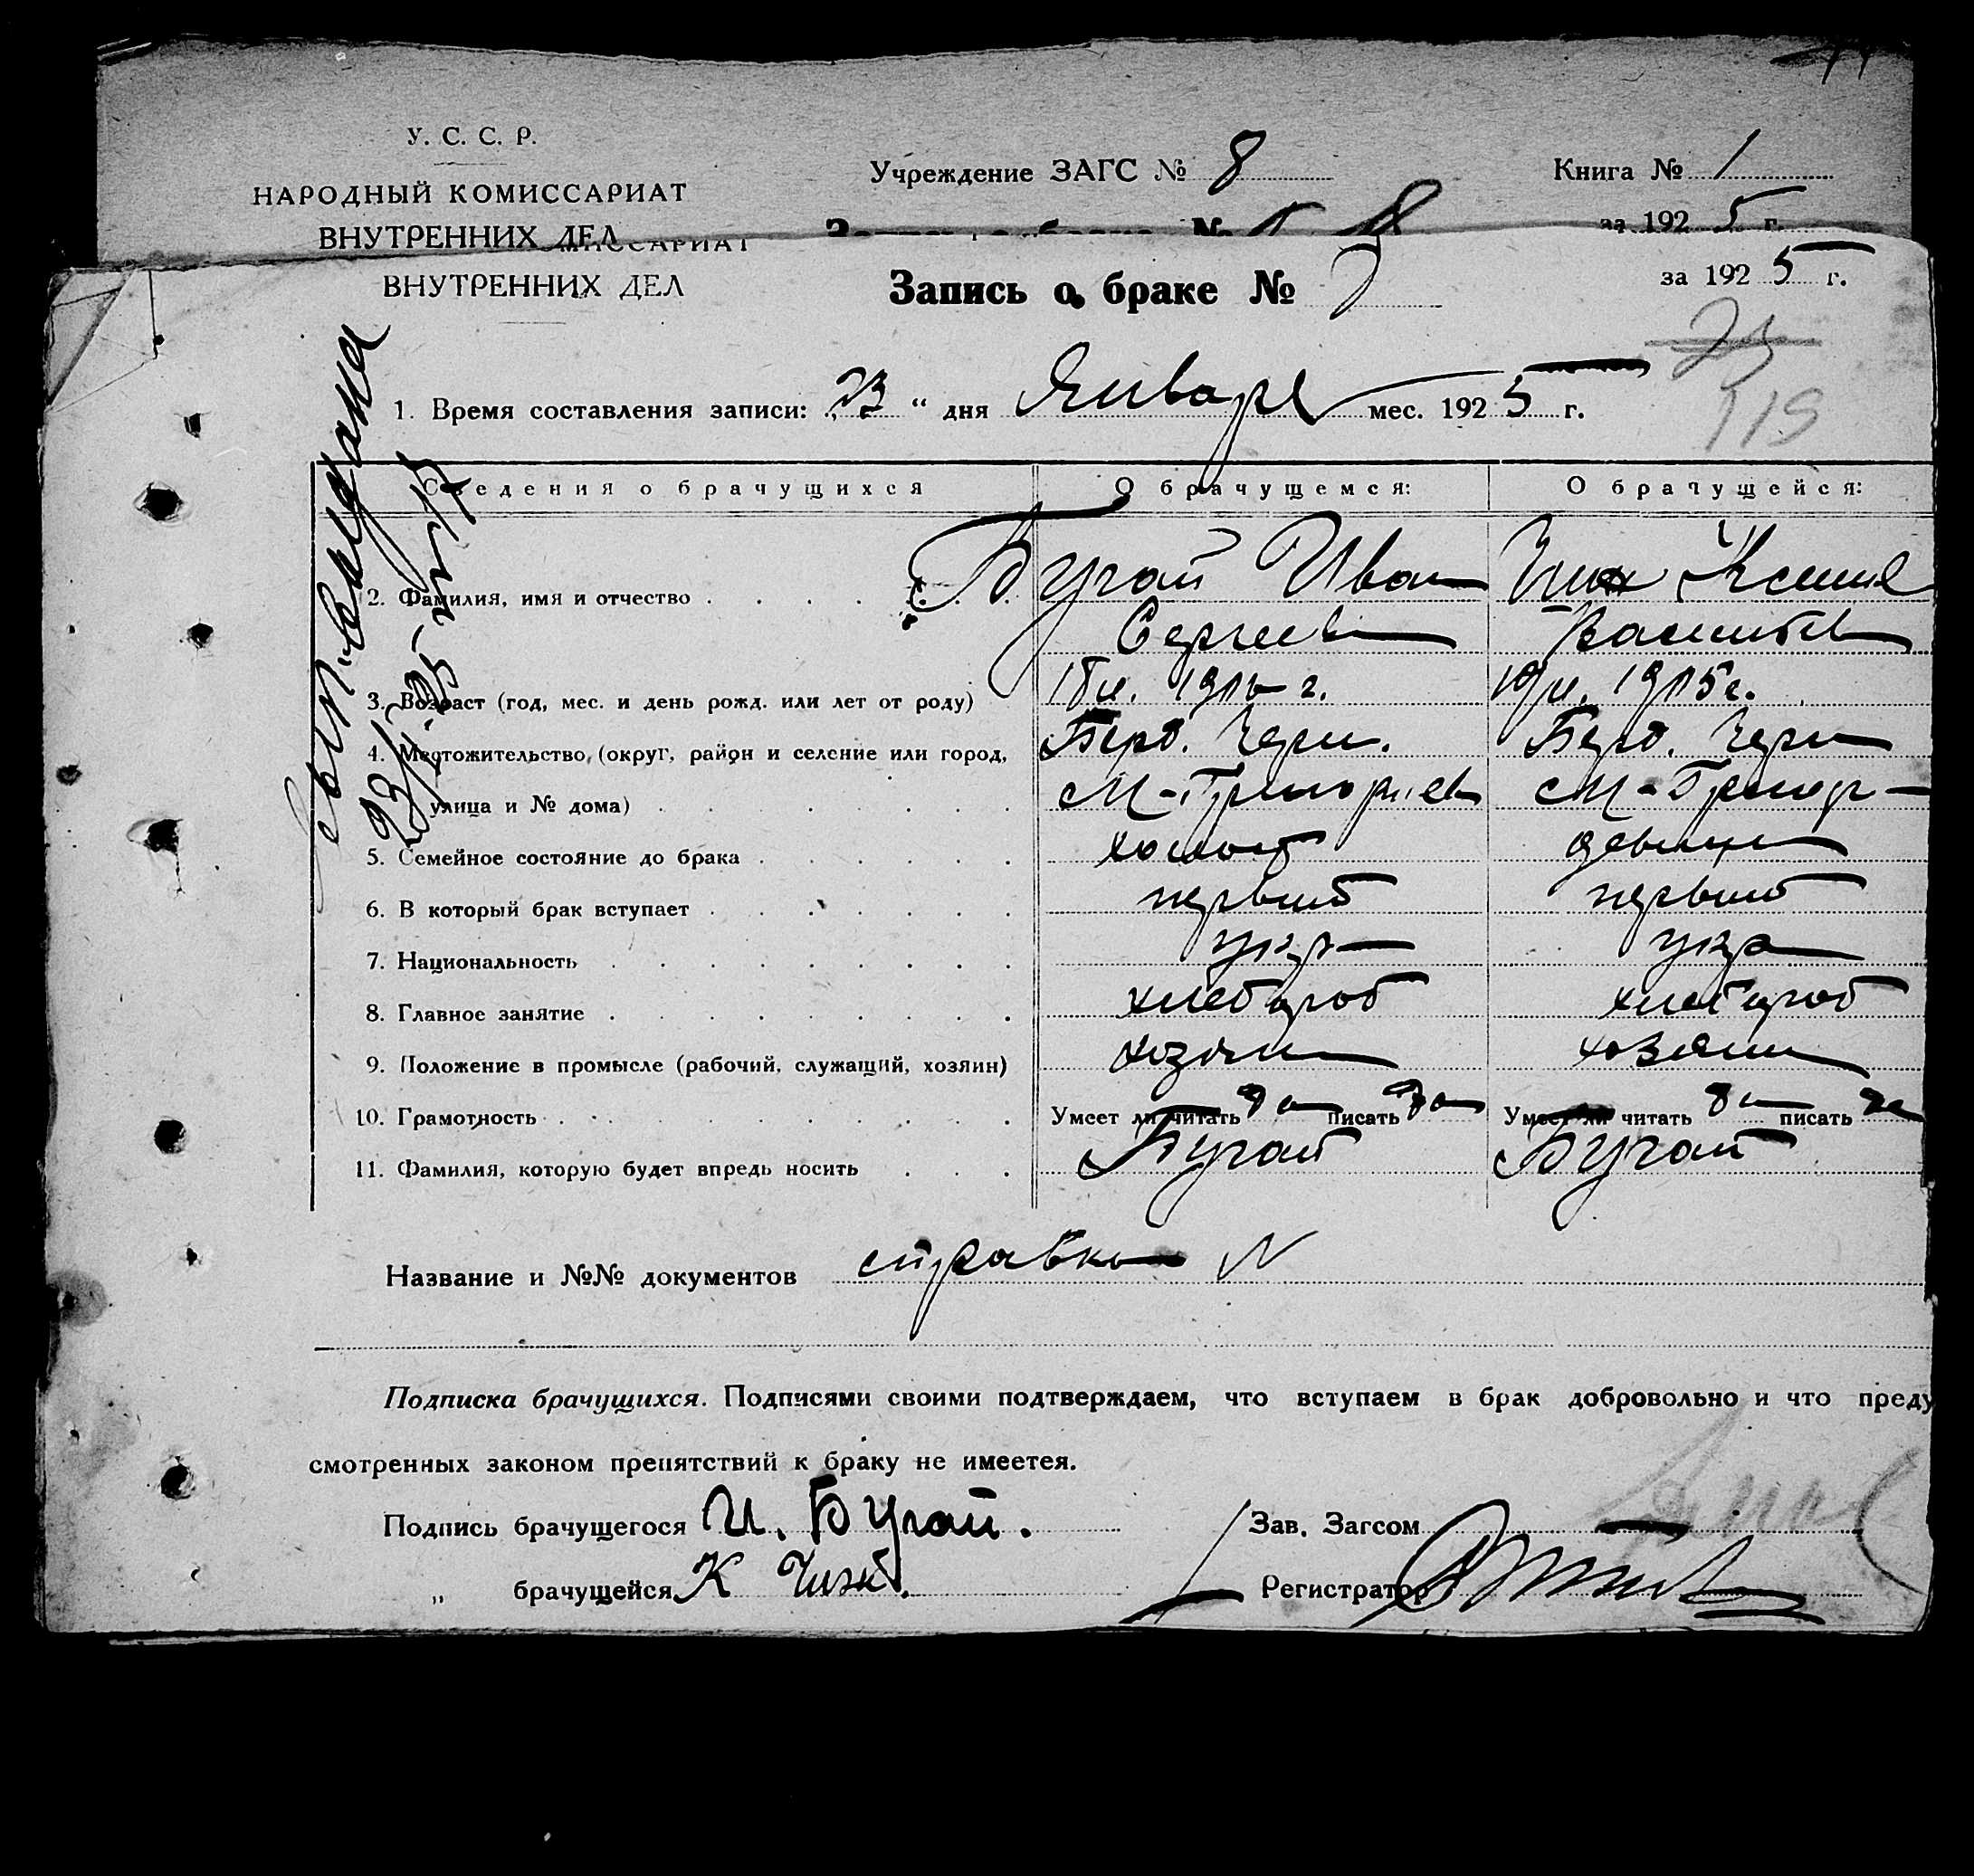 У. С. С. Р.
НАРОДНЫЙ КОМИССАРИАТ
ВНУТРЕННИХ ДЕЛ
Учреждение ЗАГС № 8
Книга № 1
за 1925 г.
ВНУТРЕННИХ ДЕЛ
Запись о браке №
за 1925 г.
1. Время составления записи: 23 " дня Января мес. 1925 г.
Сведения о брачущихся
О брачущемся:
О брачущейся:
2. Фамилия, имя и отчество
Бугай Иван
Сергеев
Ксения
Василев
3. Возраст (год, мес. и день рожд. или лет от роду)
18 л.
19 л. 1905 г.
4. Местожительство, (округ, район и селение или город,
Берд. Черн.
Берд. Черн
улица и № дома)
М-Григориев
М-Григор
5. Семейное состояние до брака
холост
девица
6. В который брак вступает
первый
первый
7. Национальность
укр
укр
8. Главное занятие
хлебороб
хлебороб
9. Положение в промысле (рабочий, служащий, хозяин)
хозяин
хозяин
10. Грамотность
Умеет ли читать да писать да
Умеет ли читать да писать да
11. Фамилия, которую будет впредь носить
Бугай
Бугай
Название и №№ документов справка N
Подписка брачущихся. Подписями своими подтверждаем, что вступаем в брак добровольно и что преду
смотренных законом препятствий к браку не имеетея.
Подпись брачущегося И. Бугай.
Зав. Загсом
" брачущейся К Чиж.
Регистратор